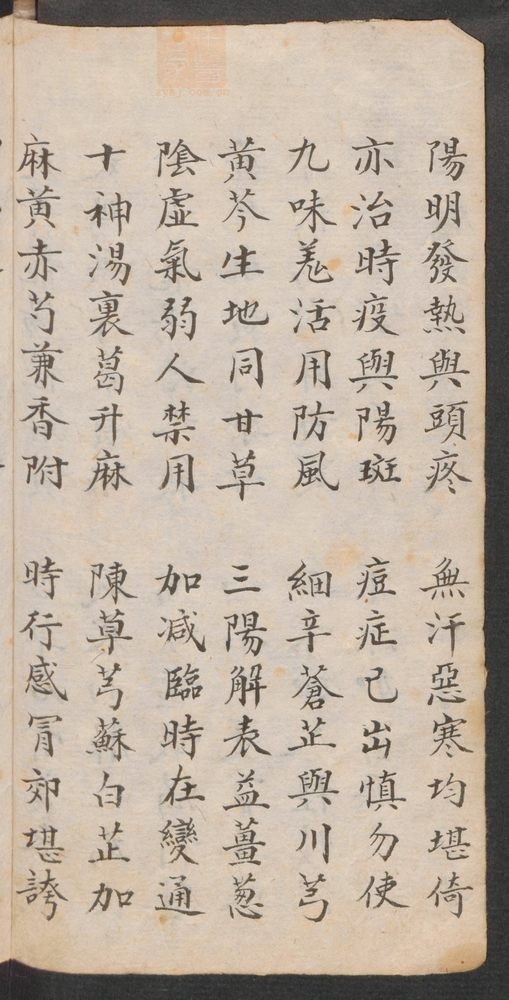 陽明發熱與頭疼　無汗惡寒均堪倚
亦治時疫與陽斑　痘症已出慎勿使
九味羌活用防風　細辛蒼芷與川芎
黃芩生地同甘草　三陽解表益薑葱
陰虛氣弱人禁用　加減臨時在變通
十神湯裏葛升麻　陳草芎蘇白芷加
麻黃赤芍兼香附　時行感冐郊堪誇